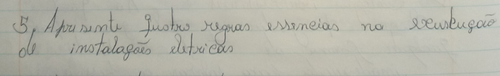 5. Apresente quatro regras essencias na execução
de instalações eletricas